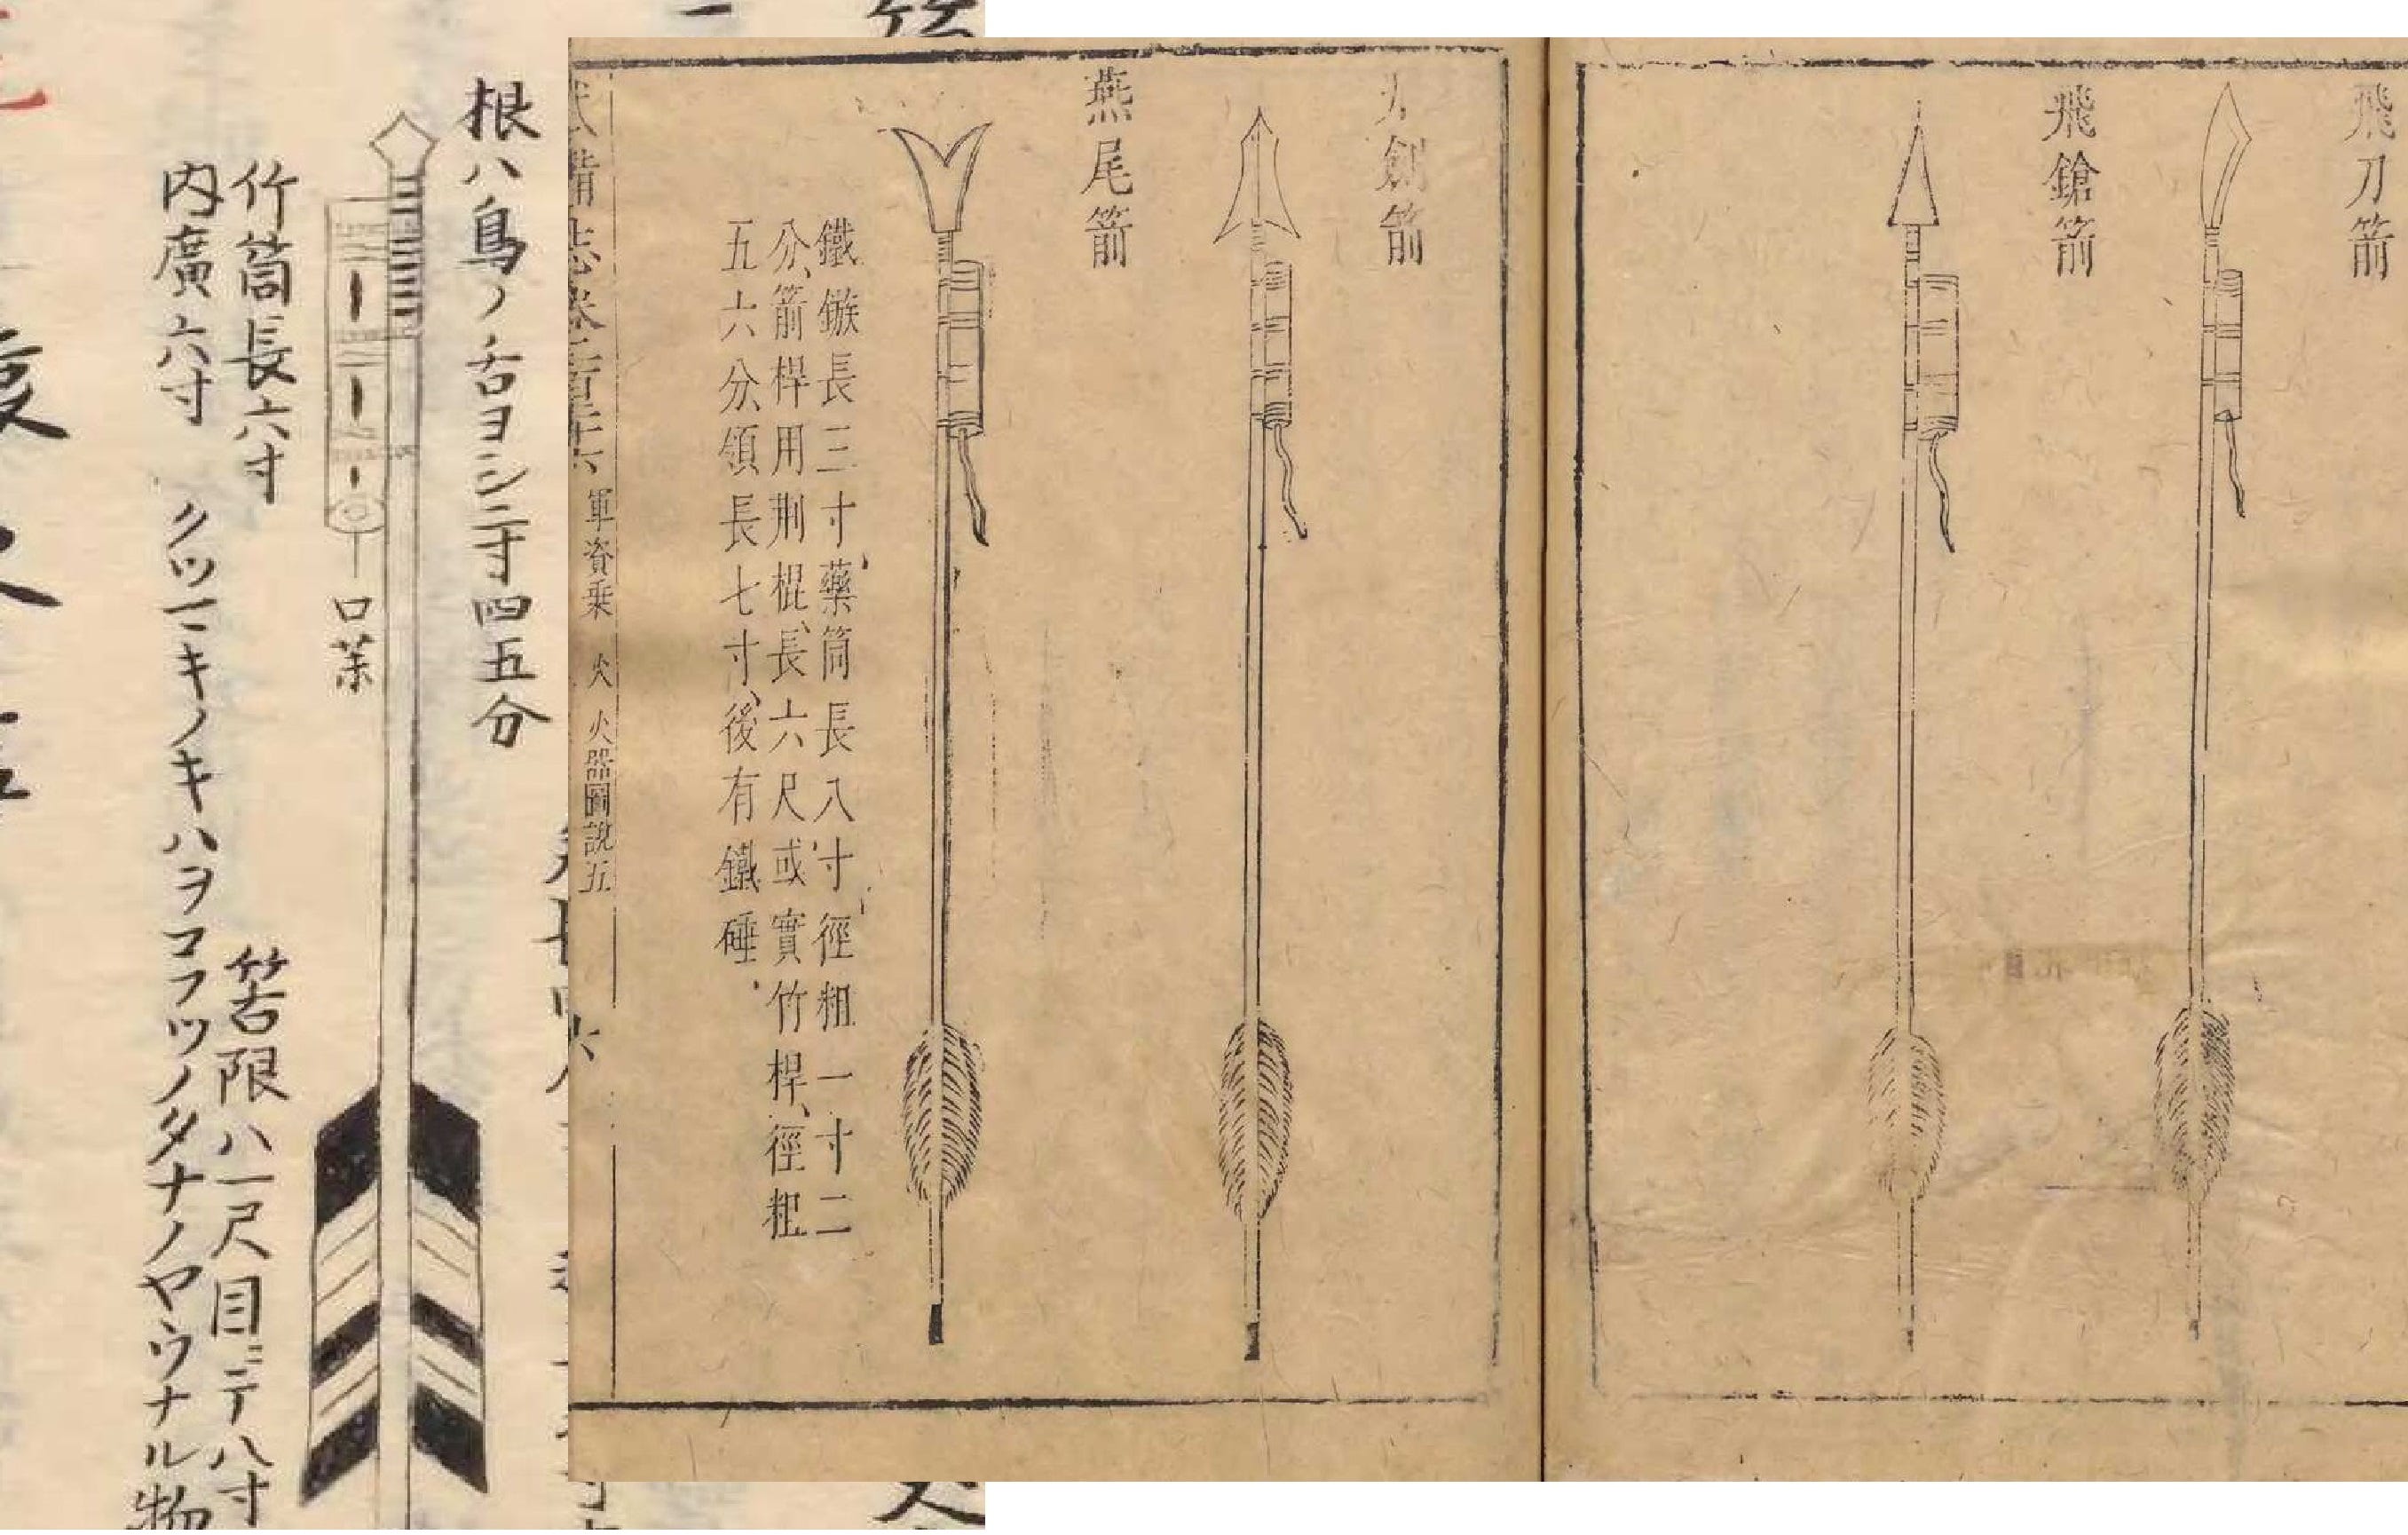 飛刀箭
飛鎗箭
劍箭
燕尾箭
鐵鏃長三寸藥筒長八寸徑粗一寸二
分、箭桿用荆棍、長六尺或實竹桿、徑粗
五六分、領長七寸、後有鐵硾
軍資乗 火 火器圖説五
六
根ハ鳥ノ舌ヨシ二寸四五分
口薬
竹筒長六寸
内廣六寸
筈限ハ一尺目ニテ八寸
クツニキノキハヲコフツノタナノヤウナル物